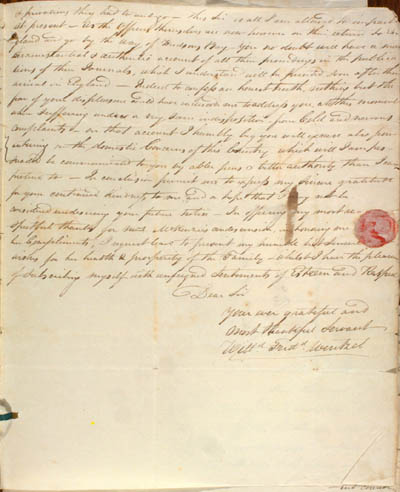 & privations they had to undergo — this Sir is all I am allowed to impart
at present — As the Officers themselves are now here on their return to En-
gland and go by the way of Hudsons Bay — You no doubt will have a more
circumstantial & authentic account of all their proceedings in the publica-
tions of their Journals, which I understand will be printed soon after their
arrival in England — Indeed to confess an honest truth, nothing but the
fear of your displeasure could have induced me to address you at this moment
when suffering under a very severe indisposition from Cold and nervous
complaints & on that account I humbly beg you will excuse also my
entering in the domestic Concerns of this Country which will I am per-
suaded be communicated to you by abler pens & better authority than I can
pretend to — In conclusion permit me to express my sincere gratitude
for your continued kindness to me and a hope that I may not be
considered undeserving your future notice — In offering my most re-
spectful thanks for Mrs McKenzies condescension in honoring me
her Compliments, I request leave to present my humble but sincere
wishes for her health & prosperity of the Family — whilst I have the pleasure
of Subscribing myself with unfeigned Sentiments of Esteem and Respect
Dear Sir
Your ever grateful and
most thankful Servant
Willd. Ferdd. Wentzel